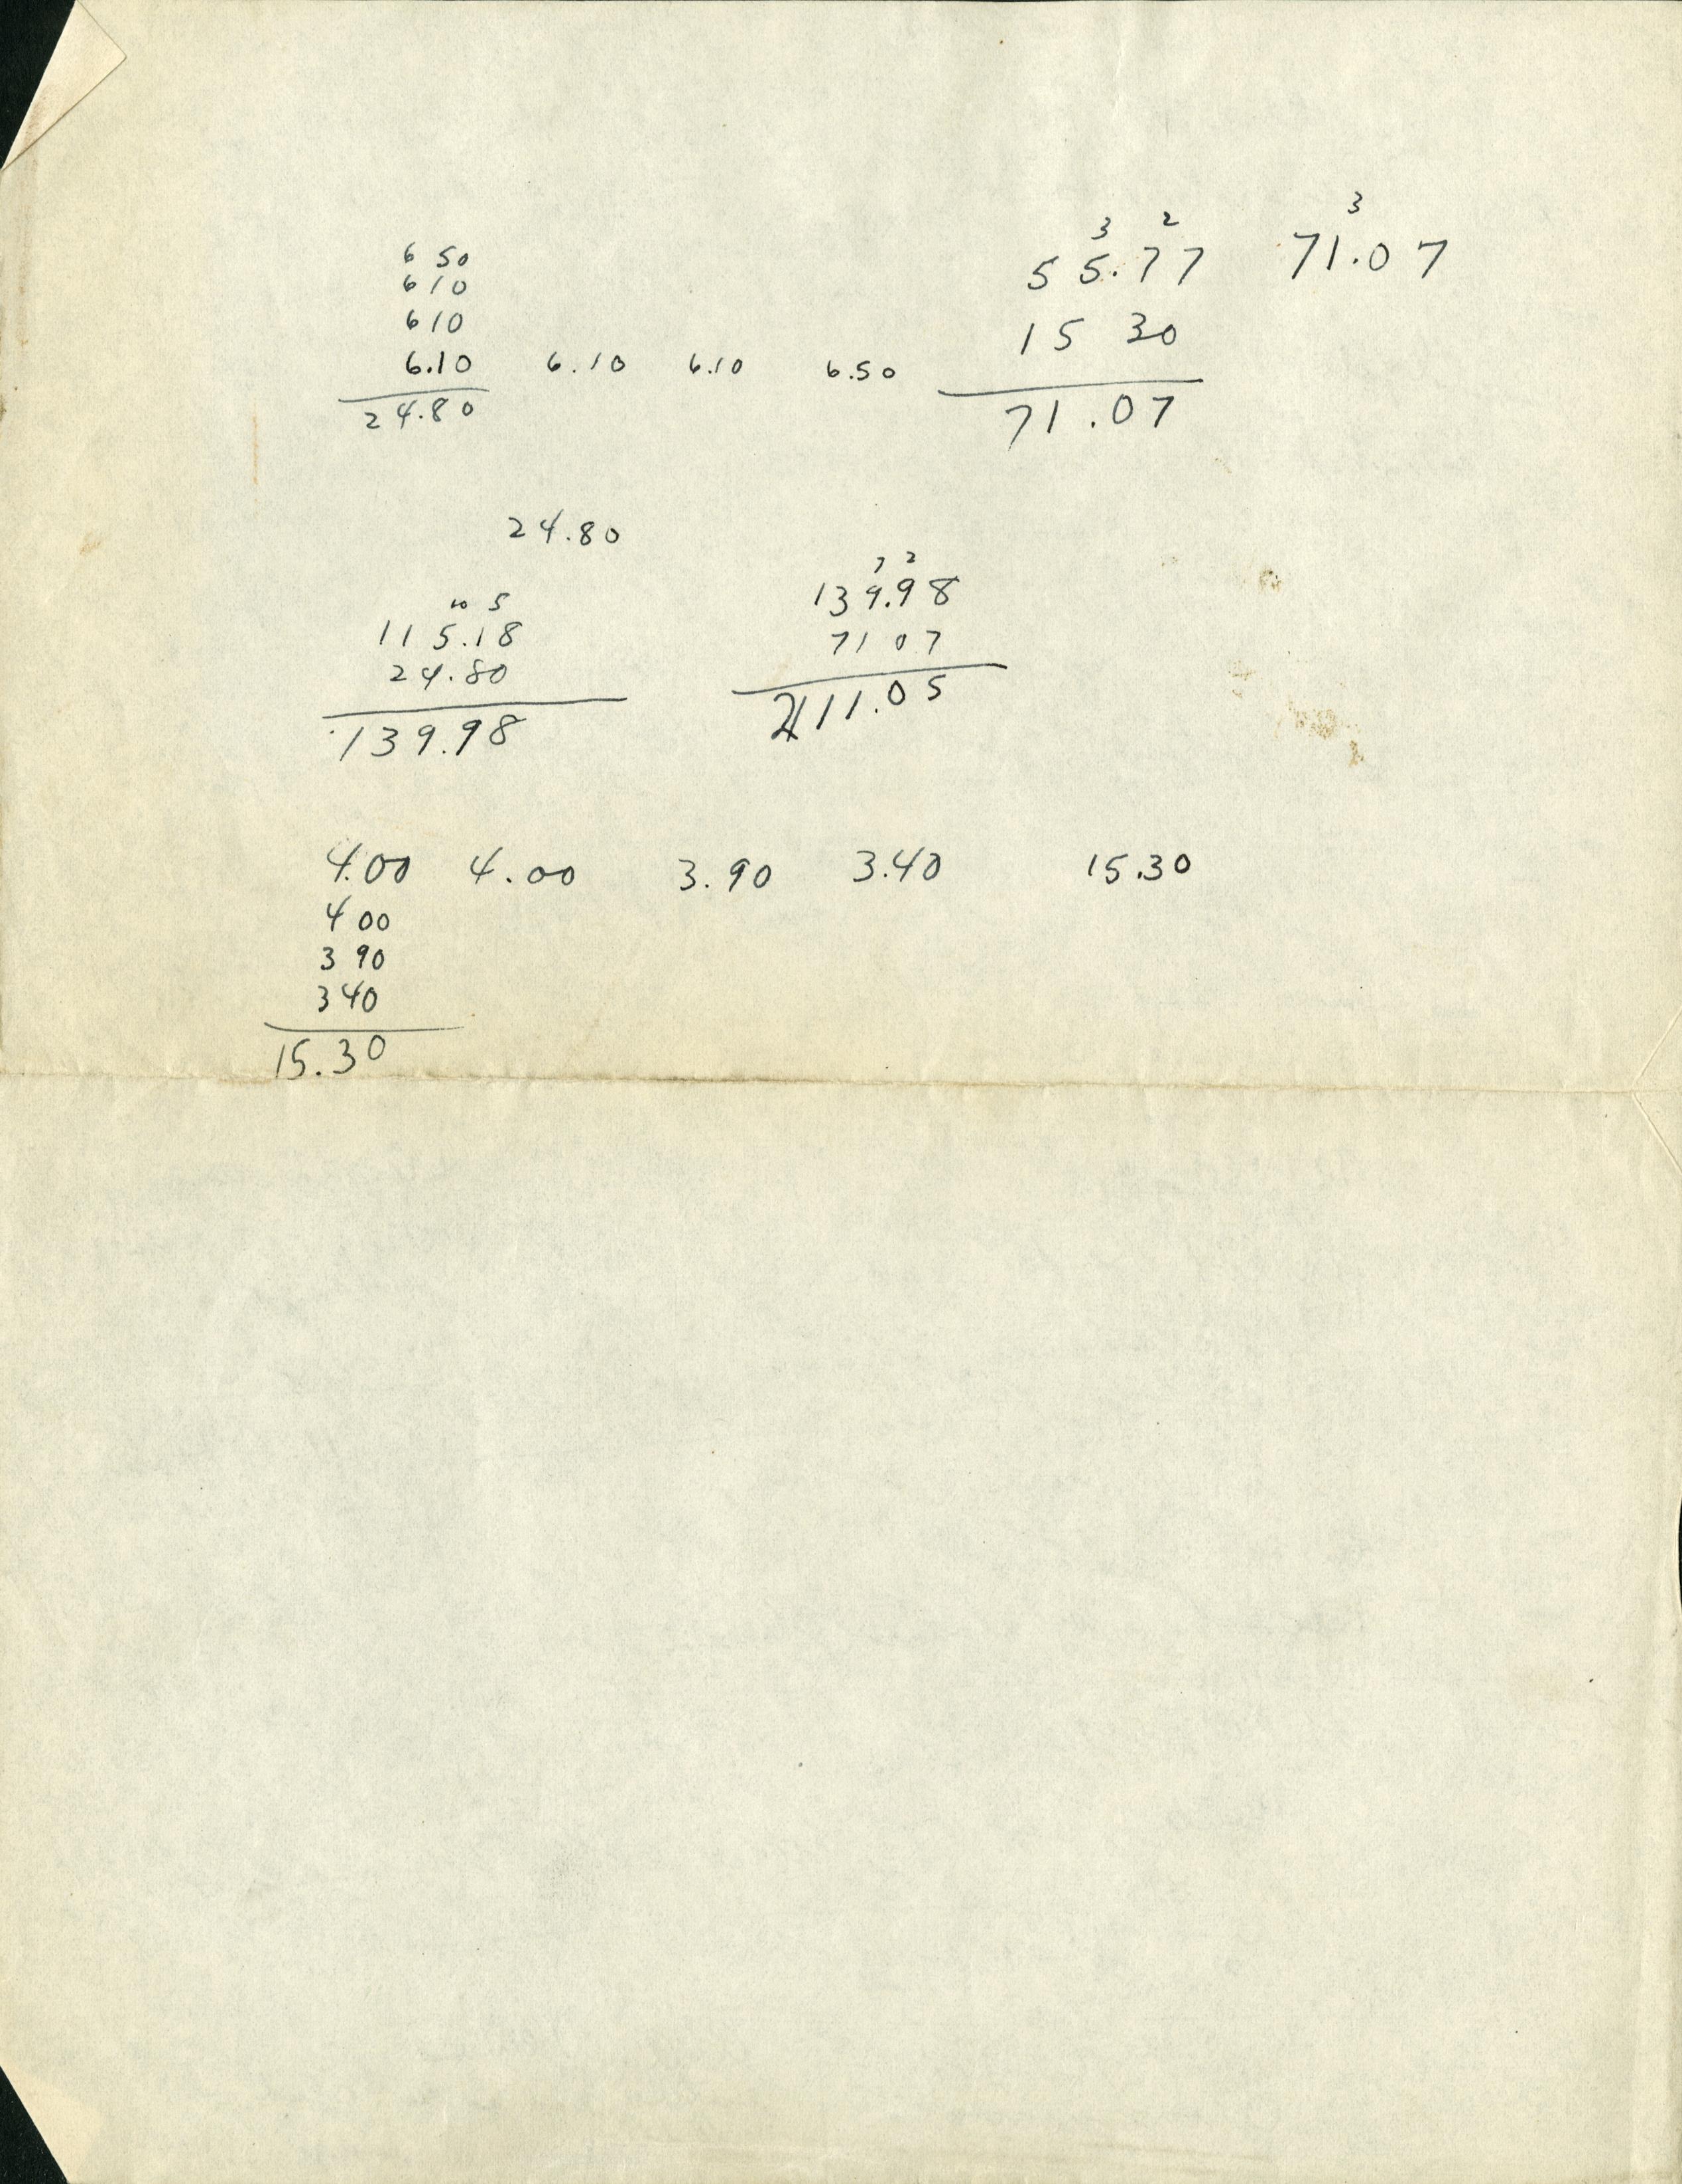 6 50
6 10
6 10
6.10 6.10 6.10 6.50
24.80
3 2 3
55.77 71.07
15 30
71.07
24.80
10 5
115.18
24.80
139.98
7 2
139.98
71 07
211.05
4.00 4.00 3.90 3.40 15.30
4 00
3 90
3 40
15.30